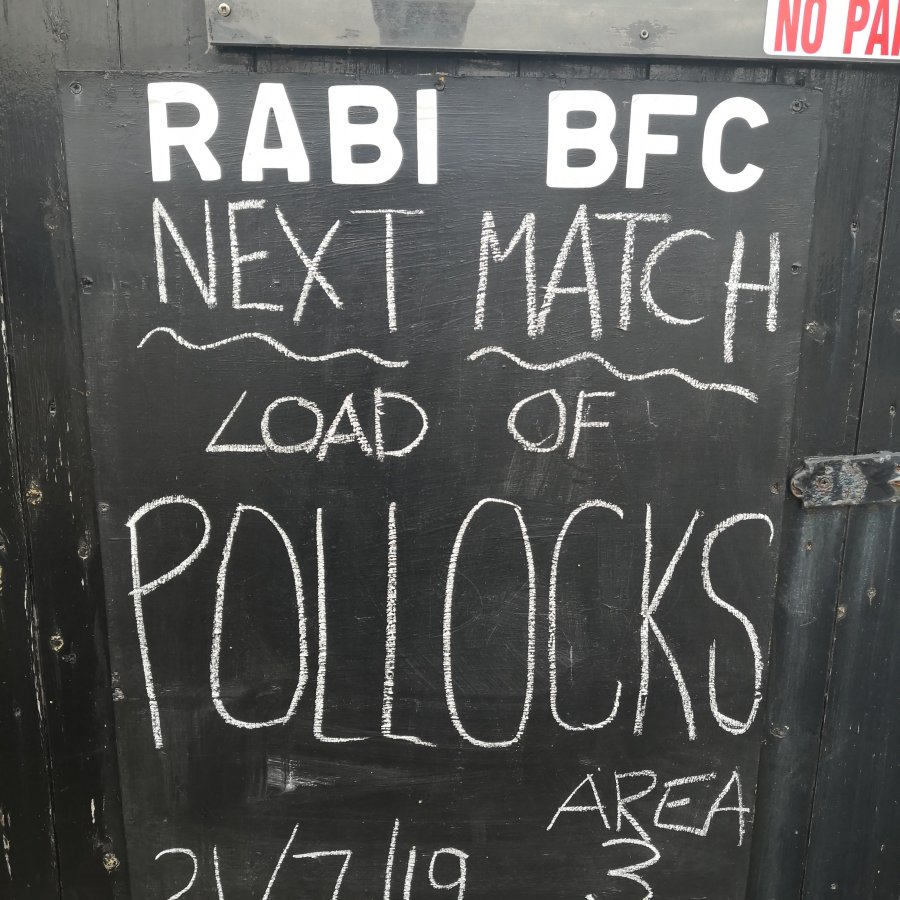 NO PA
RABI BFC
NEXT MATCH
LOAD OF
POLLOCKS
AREA
21/7/19 3